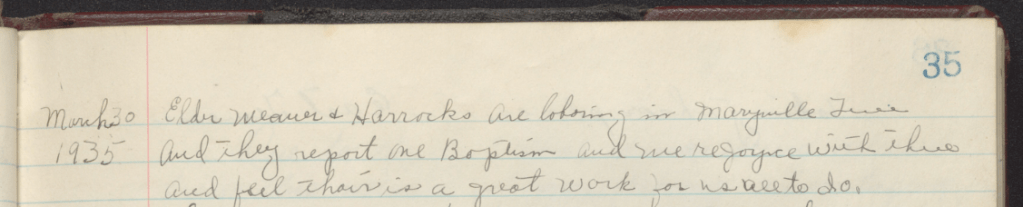 35
March 30 Elder Weaver & Harrocks are laboring in Maryville Tenn
1935 and they report one Baptism and we rejoyce with them
and feel thair is a great work for us all to do.